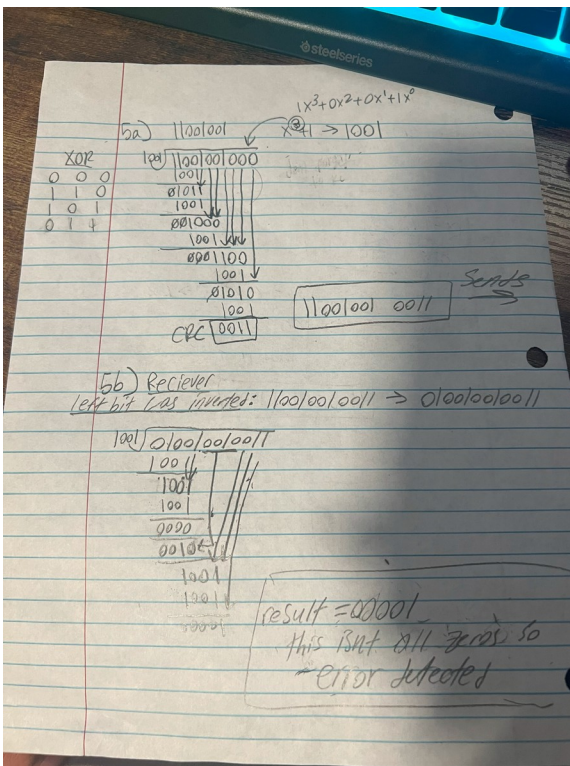 steelseries
1x³+0x²+0x¹+1x⁰
5a) 11001001
x³+1 → 1001
XOR
0 0 0
1 1 0
1 0 1
0 1 1
1001 11001001000
1001
01011
1001
001000
1001
0001100
1001
01010
1001
CRC 0011
11001001 0011
Sends
5b) Reciever
left bit was inverted: 11001001011 → 01001001011
1001 01001001011
1001
1001
1001
0000
0010
1001
1001
result = 00001
this isnt all zeros so
- error detected